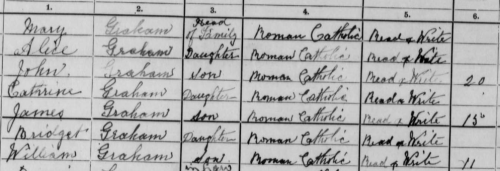 1. 2. 3. 4. 5. 6.
Mary Graham Head of Family Roman Catholic Read & Write
Alice Graham Daughter Roman Catholic Read & Write
John Graham Son Roman Catholic Read & Write 20
Catrine Graham Daughter Roman Catholic Read & Write
James Graham Son Roman Catholic Read & Write 15
Bridget Graham Daughter Roman Catholic Read & Write
William Graham Son Roman Catholic Read & Write 11